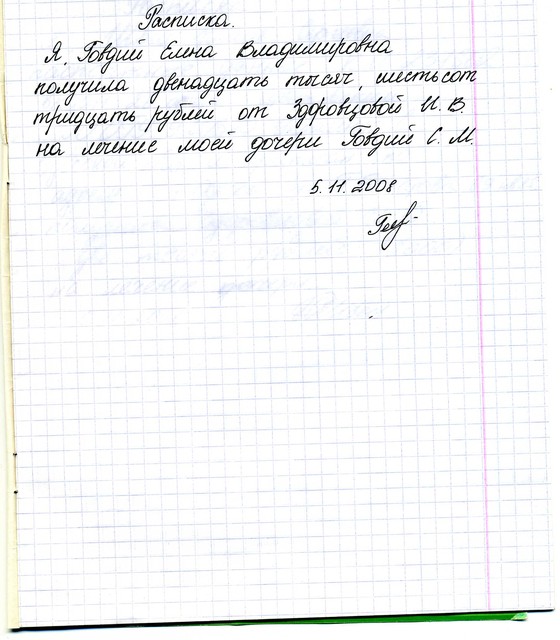 Расписка.
Я, Говдий Елена Владимировна
получила двенадцать тысяч, шестьсот
тридцать рублей от Здоровцовой И. В.
на лечение моей дочери Говдий С. М.
5.11.2008